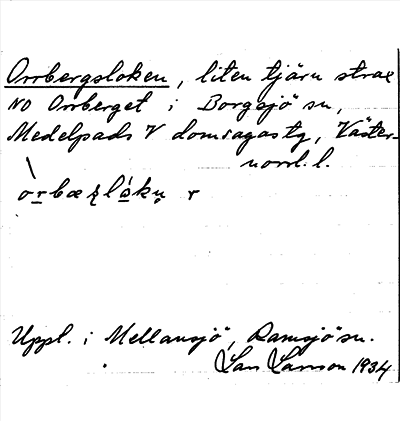 Orrbergsloken, liten tjärn strax
NO Orrberget i Borgsjö sn,
Medelpads V domsagas tg, Väster-
norrl. l.
Uppl. i Mellansjö, Ramsjö sn.
Lars Larsson 1934